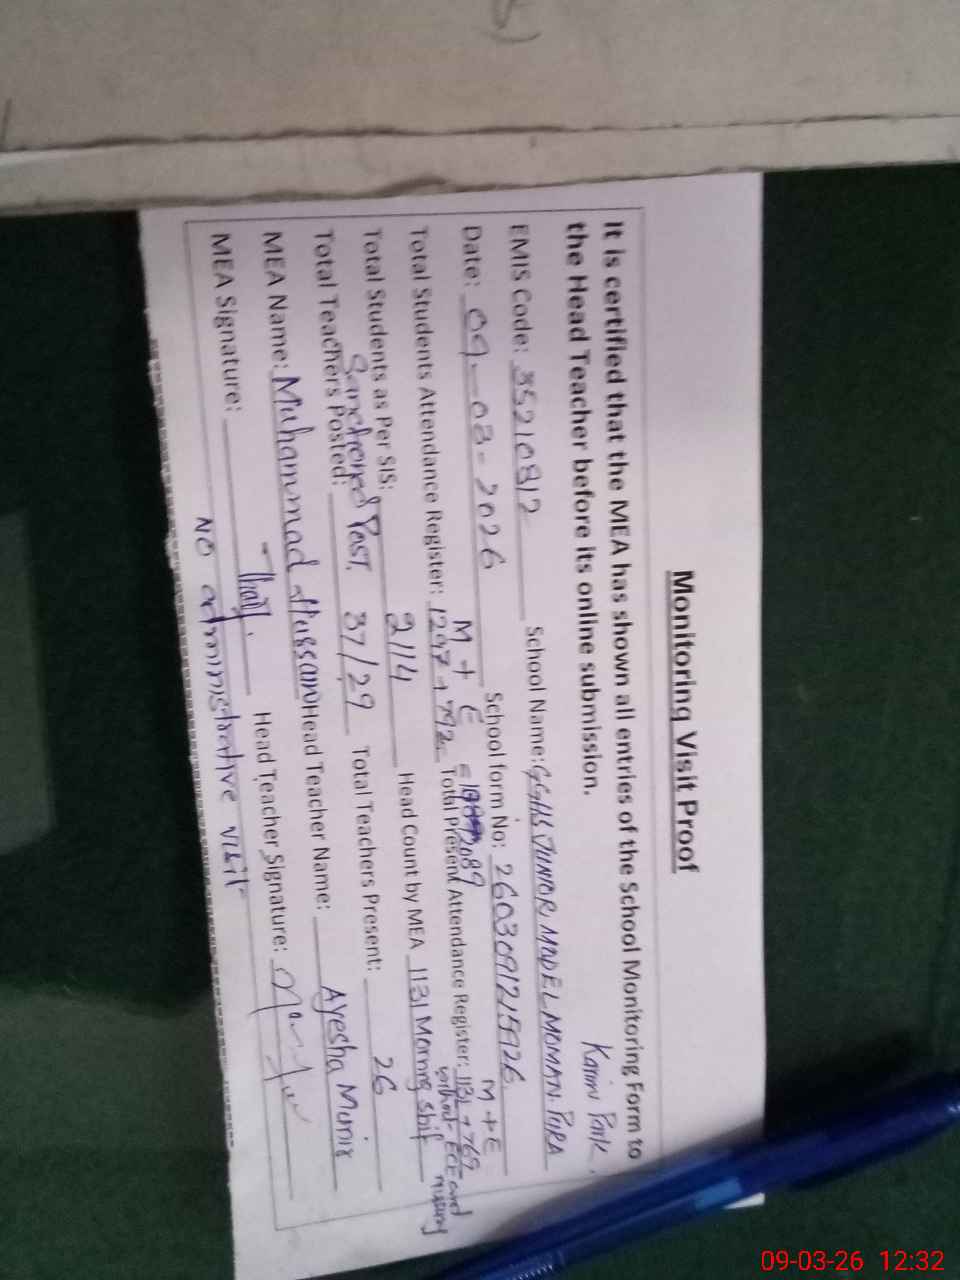 Monitoring Visit Proof
It is certified that the MEA has shown all entries of the School Monitoring Form to
the Head Teacher before its online submission.
Karim Park.
EMIS Code: 35210812 School Name: GGHS JUNIOR MODEL MOMAN PURA
Date: 09-03-2026 School form No: 2603091215926
M + E = 2089 M + E
Total Students Attendance Register: 1297 + 792 Total Present Attendance Register: 1131 + 769
without ECE and nursery
Total Students as Per SIS: 2114 Head Count by MEA 1131 Morning Shif
Sanctioned Post
Total Teachers Posted: 37/29 Total Teachers Present: 26
MEA Name: Muhammad Hassan Head Teacher Name: Ayesha Munir
MEA Signature: Head Teacher Signature:
No administrative visit
09-03-26 12:32